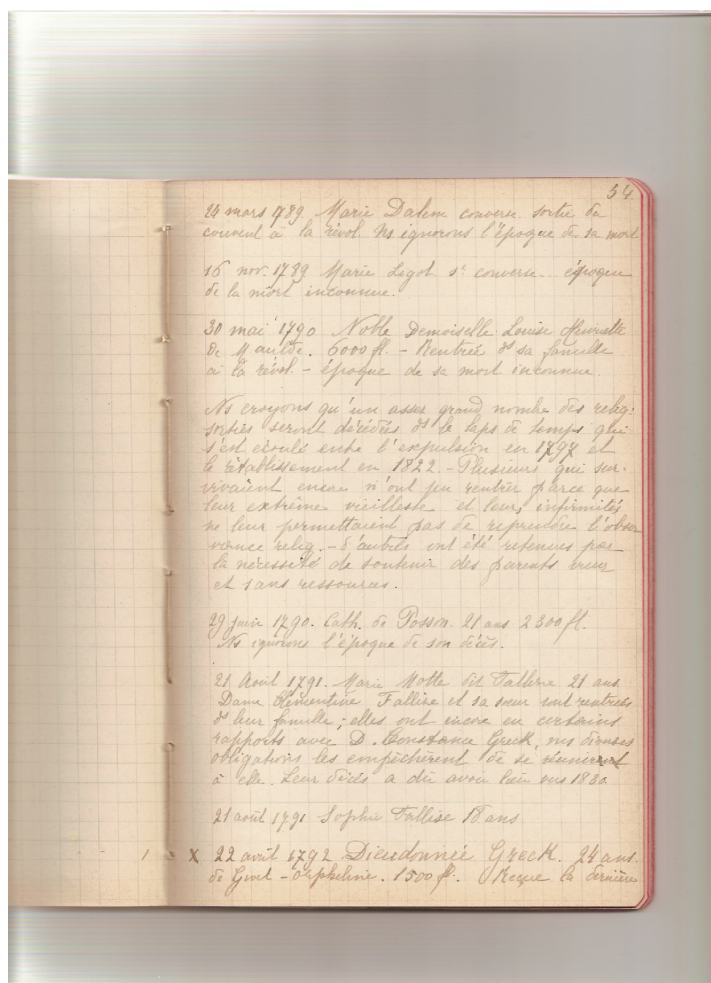 54
24 mars 1789 Marie Dalem converse sortie du
couvent à la révol. Ns ignorons l'époque de sa mort
16 nov. 1789 Marie Legot sr converse. époque
de la mort inconnue.
30 mai 1790 Noble Demoiselle Louise Henriette
de Maulde. 6000 fl. - Rentrée ds sa famille
à la révol. - époque de sa mort inconnue.
Ns croyons qu'un assez grand nombre des relig:
sorties seront décédées ds le laps de temps qui
s'est écoulé entre l'expulsion en 1797 et
le rétablissement en 1822. - Plusieurs qui sur-
vivaient encore n'ont pu rentrer parce que
leur extrême vieillesse et leurs infirmités
ne leur permettaient pas de reprendre l'obser
vance relig. - d'autres ont été retenues par
la nécessité de soutenir des parents vieux
et sans ressources.
29 juin 1790. Cath. de Posson. 21 ans 2300 fl.
Ns ignorons l'époque de son décès.
21 Août 1791. Marie Motte dit Fallise 21 ans
Dame Clémentine Fallise et sa sœur sont rentrées
ds leur famille; elles ont encore eu certains
rapports avec D. Constance Greck, mais diverses
obligations les empêchèrent de se réunir
à elle. Leur décès a dû avoir lieu vers 1830
21 août 1791 Sophie Fallise 18 ans
1 X 22 avril 1792 Dieudonnée Greck. 24 ans.
de Givet - orpheline. 1500 fl. Reçue la dernière